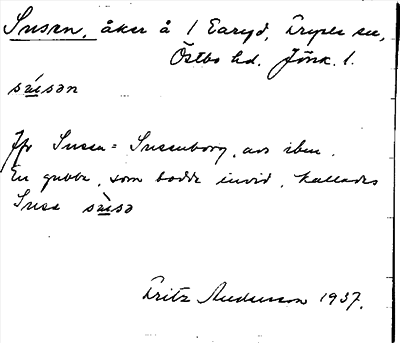 Susen, åker å 1 Earyd, Tryple sn,
Östbo hd. Jönk. l.
Jfr Susen = Susenborg, avs iben.
En gubbe, som bodde invid, kallades
Susa
Fritz Andersson 1937.